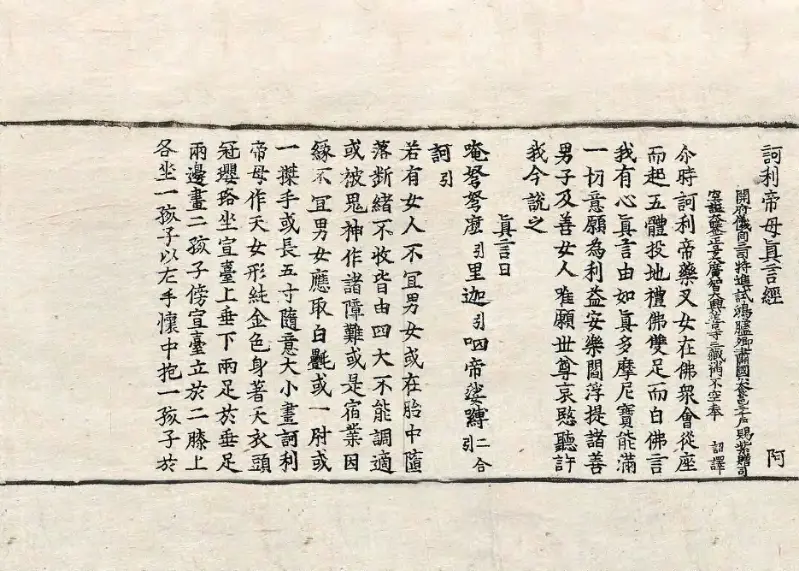 訶利帝母眞言經　阿
開府儀同三司特進試鴻臚卿肅國公食邑三千戶賜紫贈司
空謚大鑒正号大廣智大興善寺三藏沙門不空奉　詔譯
尒時訶利帝藥叉女在佛衆會從座
而起五體投地禮佛雙足而白佛言
我有心眞言由如眞多摩尼寶能滿
一切意願為利益安樂閻浮提諸善
男子及善女人唯願世尊哀愍聽許
我今説之
眞言曰
唵弩弩麽引里迦引呬帝娑嚩二合引
訶引
若有女人不冝男女或在胎中隨
落斷緒不收皆由四大不能調適
或被鬼神作諸障難或是宿業因
緣不冝男女應取白㲲或一肘或
一磔手或長五寸隨意大小畫訶利
帝母作天女形純金色身著天衣頭
冠瓔珞坐宣臺上垂下兩足於垂足
兩邊畫二孩子傍宣臺立於二膝上
各坐一孩子以左手懷中抱一孩子於